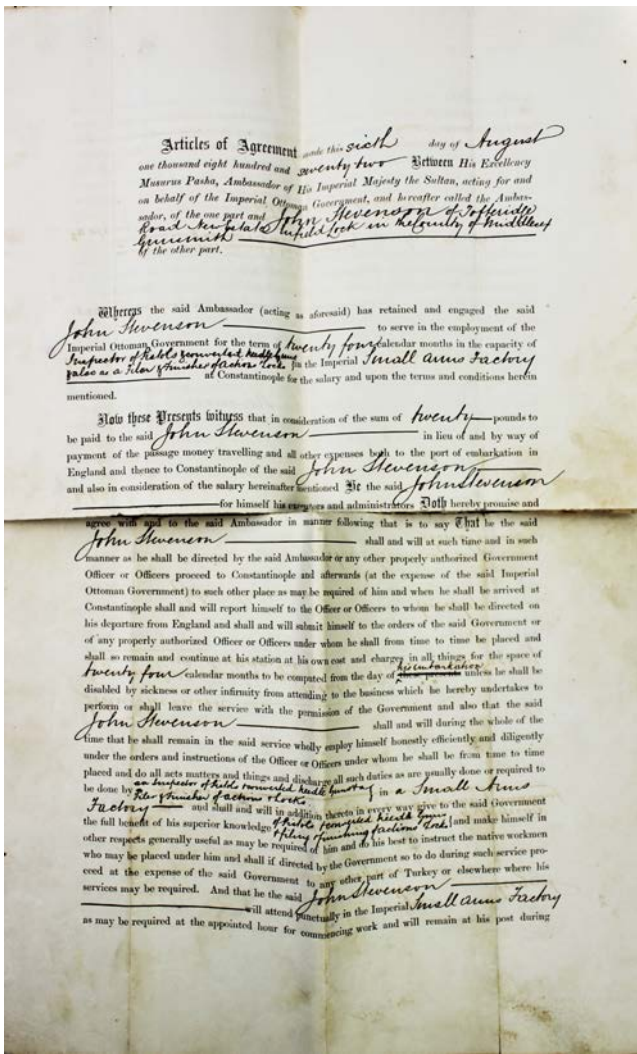 Articles of Agreement made this sixth day of August
one thousand eight hundred and seventy two Between His Excellency
Musurus Pasha, Ambassador of His Imperial Majesty the Sultan, acting for and
on behalf of the Imperial Ottoman Government, and hereafter called the Ambas-
sador, of the one part and John Stevenson of Totteridge
Road New Estate Enfield Lock in the County of Middlesex
Gunsmith
of the other part.
Whereas the said Ambassador (acting as aforesaid) has retained and engaged the said
John Stevenson to serve in the employment of the
Imperial Ottoman Government for the term of twenty four calendar months in the capacity of
Inspector of Pistols & converted needle Guns
& also as a Filer & finisher of actions & Locks in the Imperial Small arms Factory
at Constantinople for the salary and upon the terms and conditions herein
mentioned.
Now these Presents witness that in consideration of the sum of twenty pounds to
be paid to the said John Stevenson in lieu of and by way of
payment of the passage money travelling and all other expenses both to the port of embarkation in
England and thence to Constantinople of the said John Stevenson
and also in consideration of the salary hereinafter mentioned He the said John Stevenson
for himself his executors and administrators Doth hereby promise and
agree with and to the said Ambassador in manner following that is to say That he the said
John Stevenson shall and will at such time and in such
manner as he shall be directed by the said Ambassador or any other properly authorized Government
Officer or Officers proceed to Constantinople and afterwards (at the expense of the said Imperial
Ottoman Government) to such other place as may be required of him and when he shall be arrived at
Constantinople shall and will report himself to the Officer or Officers to whom he shall be directed on
his departure from England and shall and will submit himself to the orders of the said Government or
of any properly authorized Officer or Officers under whom he shall from time to time be placed and
shall so remain and continue at his station at his own cost and charges in all things for the space of
twenty four calendar months to be computed from the day of his embarkation unless he shall be
disabled by sickness or other infirmity from attending to the business which he hereby undertakes to
perform or shall leave the service with the permission of the Government and also that the said
John Stevenson shall and will during the whole of the
time that he shall remain in the said service wholly employ himself honestly efficiently and diligently
under the orders and instructions of the Officer or Officers under whom he shall be from time to time
placed and do all acts matters and things and discharge all such duties as are usually done or required to
be done by an Inspector of Pistols & converted needle Guns & as in a Small Arms
Filer & finisher of actions & Locks
Factory and shall and will in addition thereto in every way give to the said Government
the full benefit of his superior knowledge of Pistols & converted Needle Guns
& filing & finishing of actions & Locks and make himself in
other respects generally useful as may be required of him and do his best to instruct the native workmen
who may be placed under him and shall if directed by the Government so to do during such service pro-
ceed at the expense of the said Government to any other part of Turkey or elsewhere where his
services may be required. And that he the said John Stevenson
will attend punctually in the Imperial Small arms Factory
as may be required at the appointed hour for commencing work and will remain at his post during